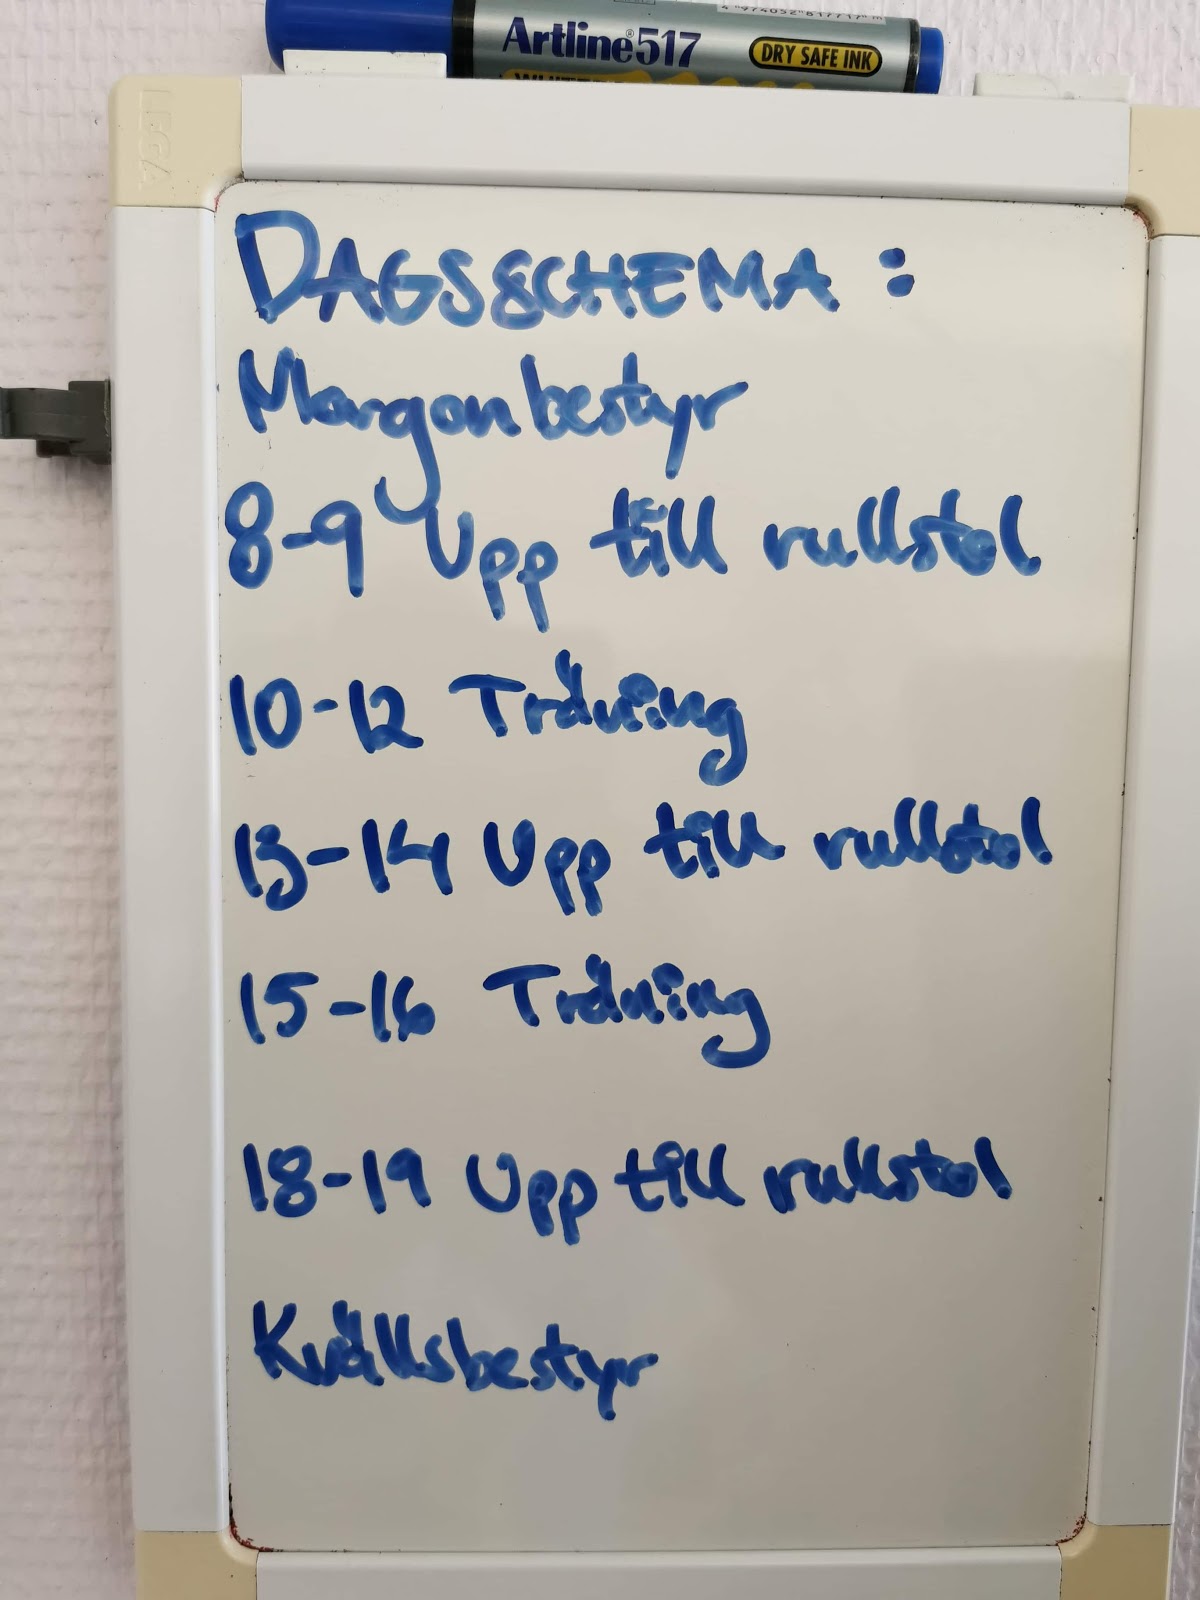 4974052817717
Artline®517
DRY SAFE INK
DAGSSCHEMA:
Morgonbestyr
8-9 Upp till rullstol
10-12 Träning
13-14 Upp till rullstol
15-16 Träning
18-19 Upp till rullstol
Kvällsbestyr